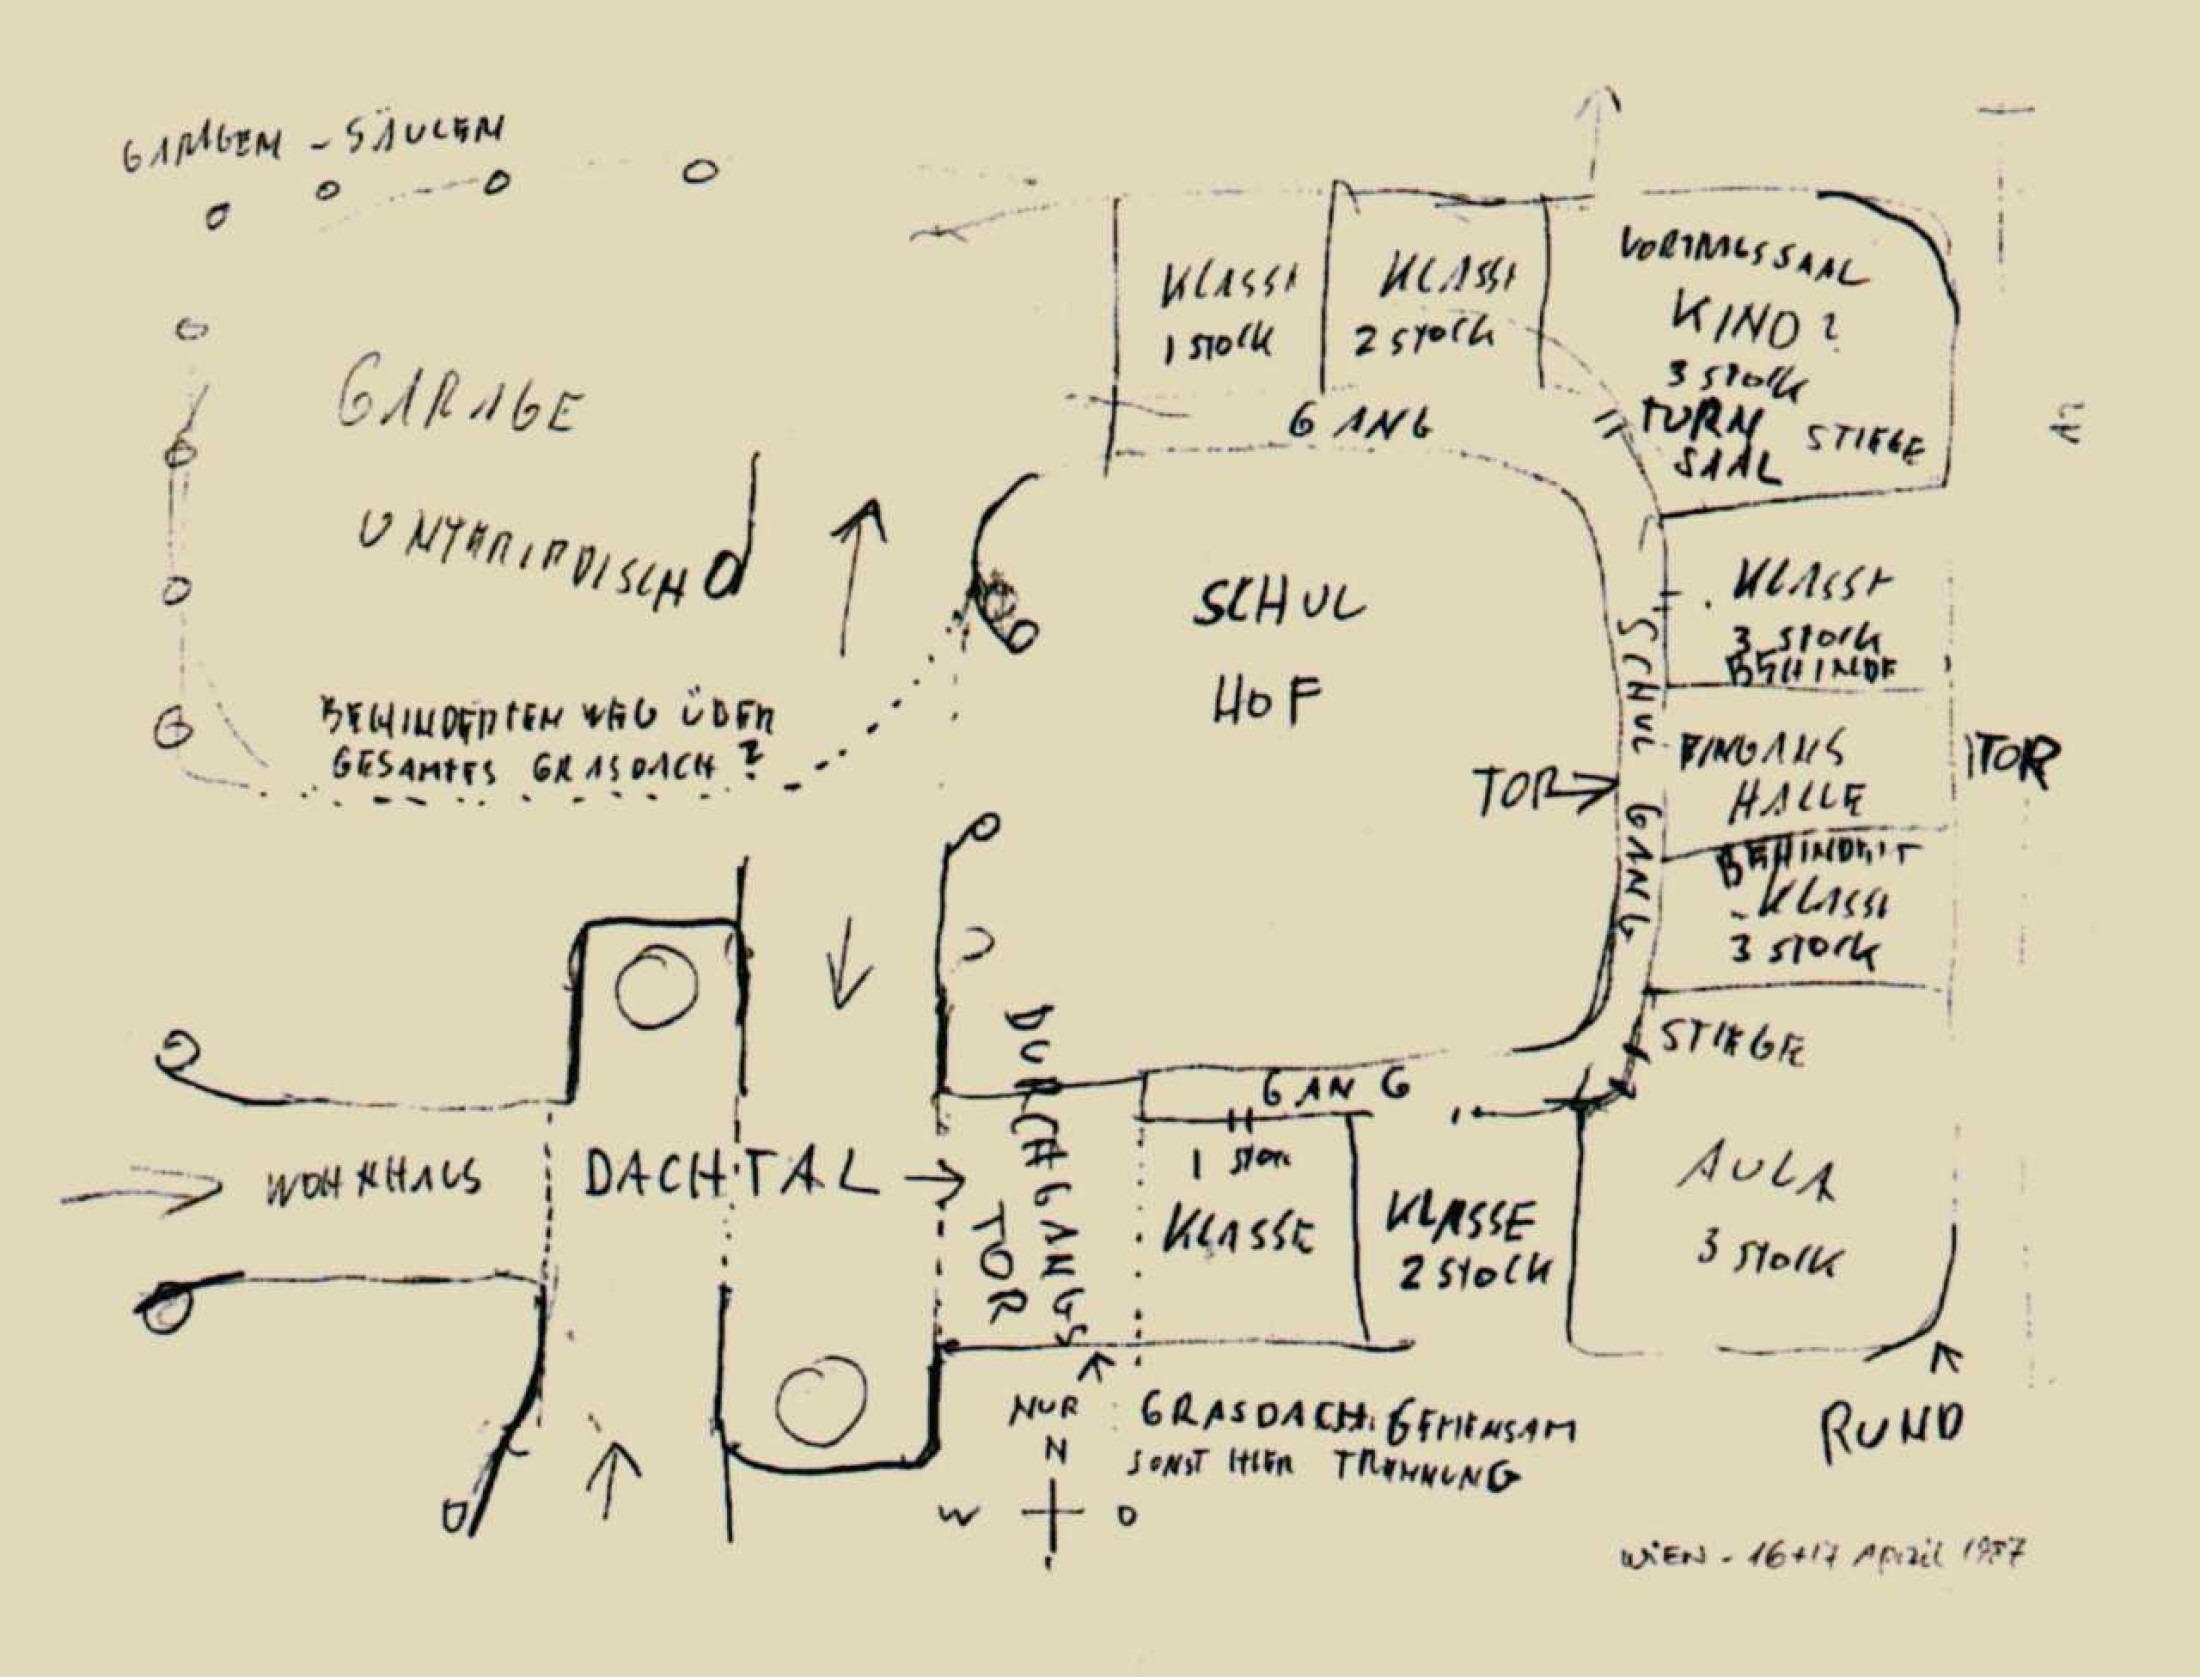 GARAGEN - SÄULEN
KLASSE
1 STOCK
KLASSE
2 STOCK
VORTRAGSSAAL
KINO?
3 STOCK
TURN
SAAL
STIEGE
GANG
GARAGE
UNTERIRDISCH
SCHUL
HOF
KLASSE
3 STOCK
BEHINDE
SCHUL GANG
BEHINDERTEN WEG ÜBER
GESAMTES GRASDACH?
EINGANGS
HALLE
TOR
TOR
BEHINDERT
KLASSE
3 STOCK
STIEGE
GANG
DURCHGANGS
TOR
WOHNHAUS
DACHTAL
1 STOCK
KLASSE
KLASSE
2 STOCK
AULA
3 STOCK
NUR
N
W
O
GRASDACH GEMEINSAM
SONST HIER TRENNUNG
RUND
WIEN - 16+17 April 1987